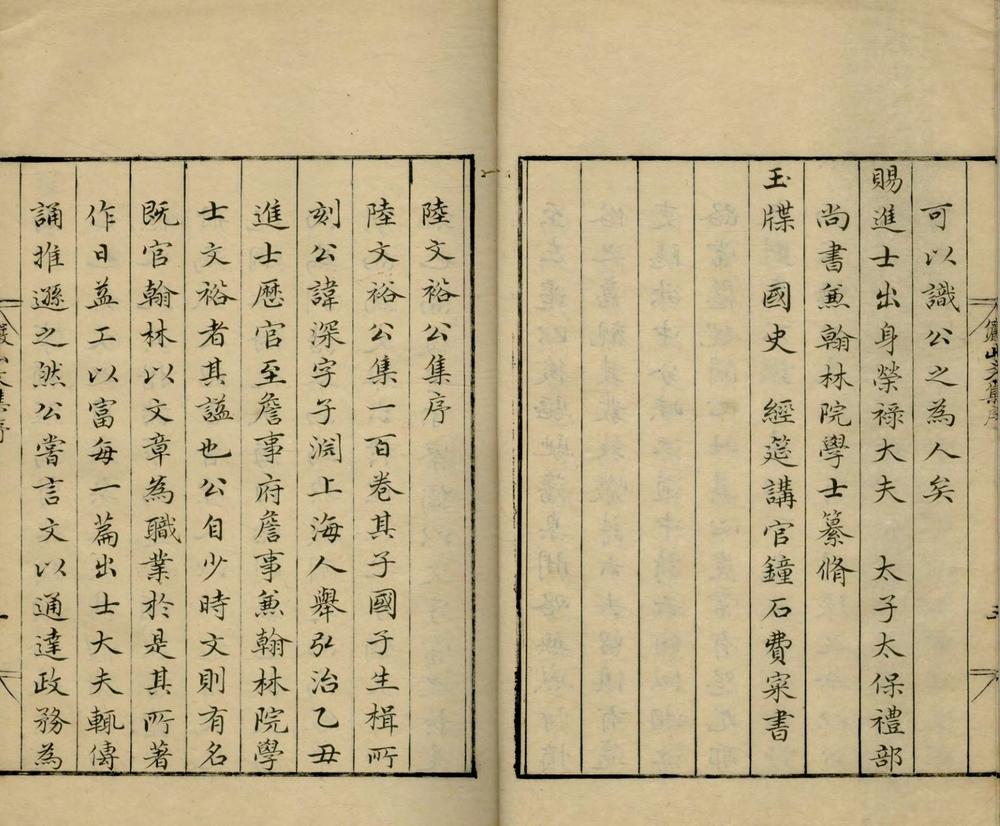 可以識公之為人矣
賜進士出身榮祿大夫　太子太保禮部
尚書兼翰林院學士纂脩
玉牒　國史　經筵講官鐘石費寀書
陸文裕公集序
陸文裕公集一百卷其子國子生楫所
刻公諱深字子淵上海人舉弘治乙丑
進士歷官至詹事府詹事兼翰林院學
士文裕者其謚也公自少時文則有名
既官翰林以文章為職業於是其所著
作日益工以富每一篇出士大夫輒傳
誦推遜之然公嘗言文以通達政務為